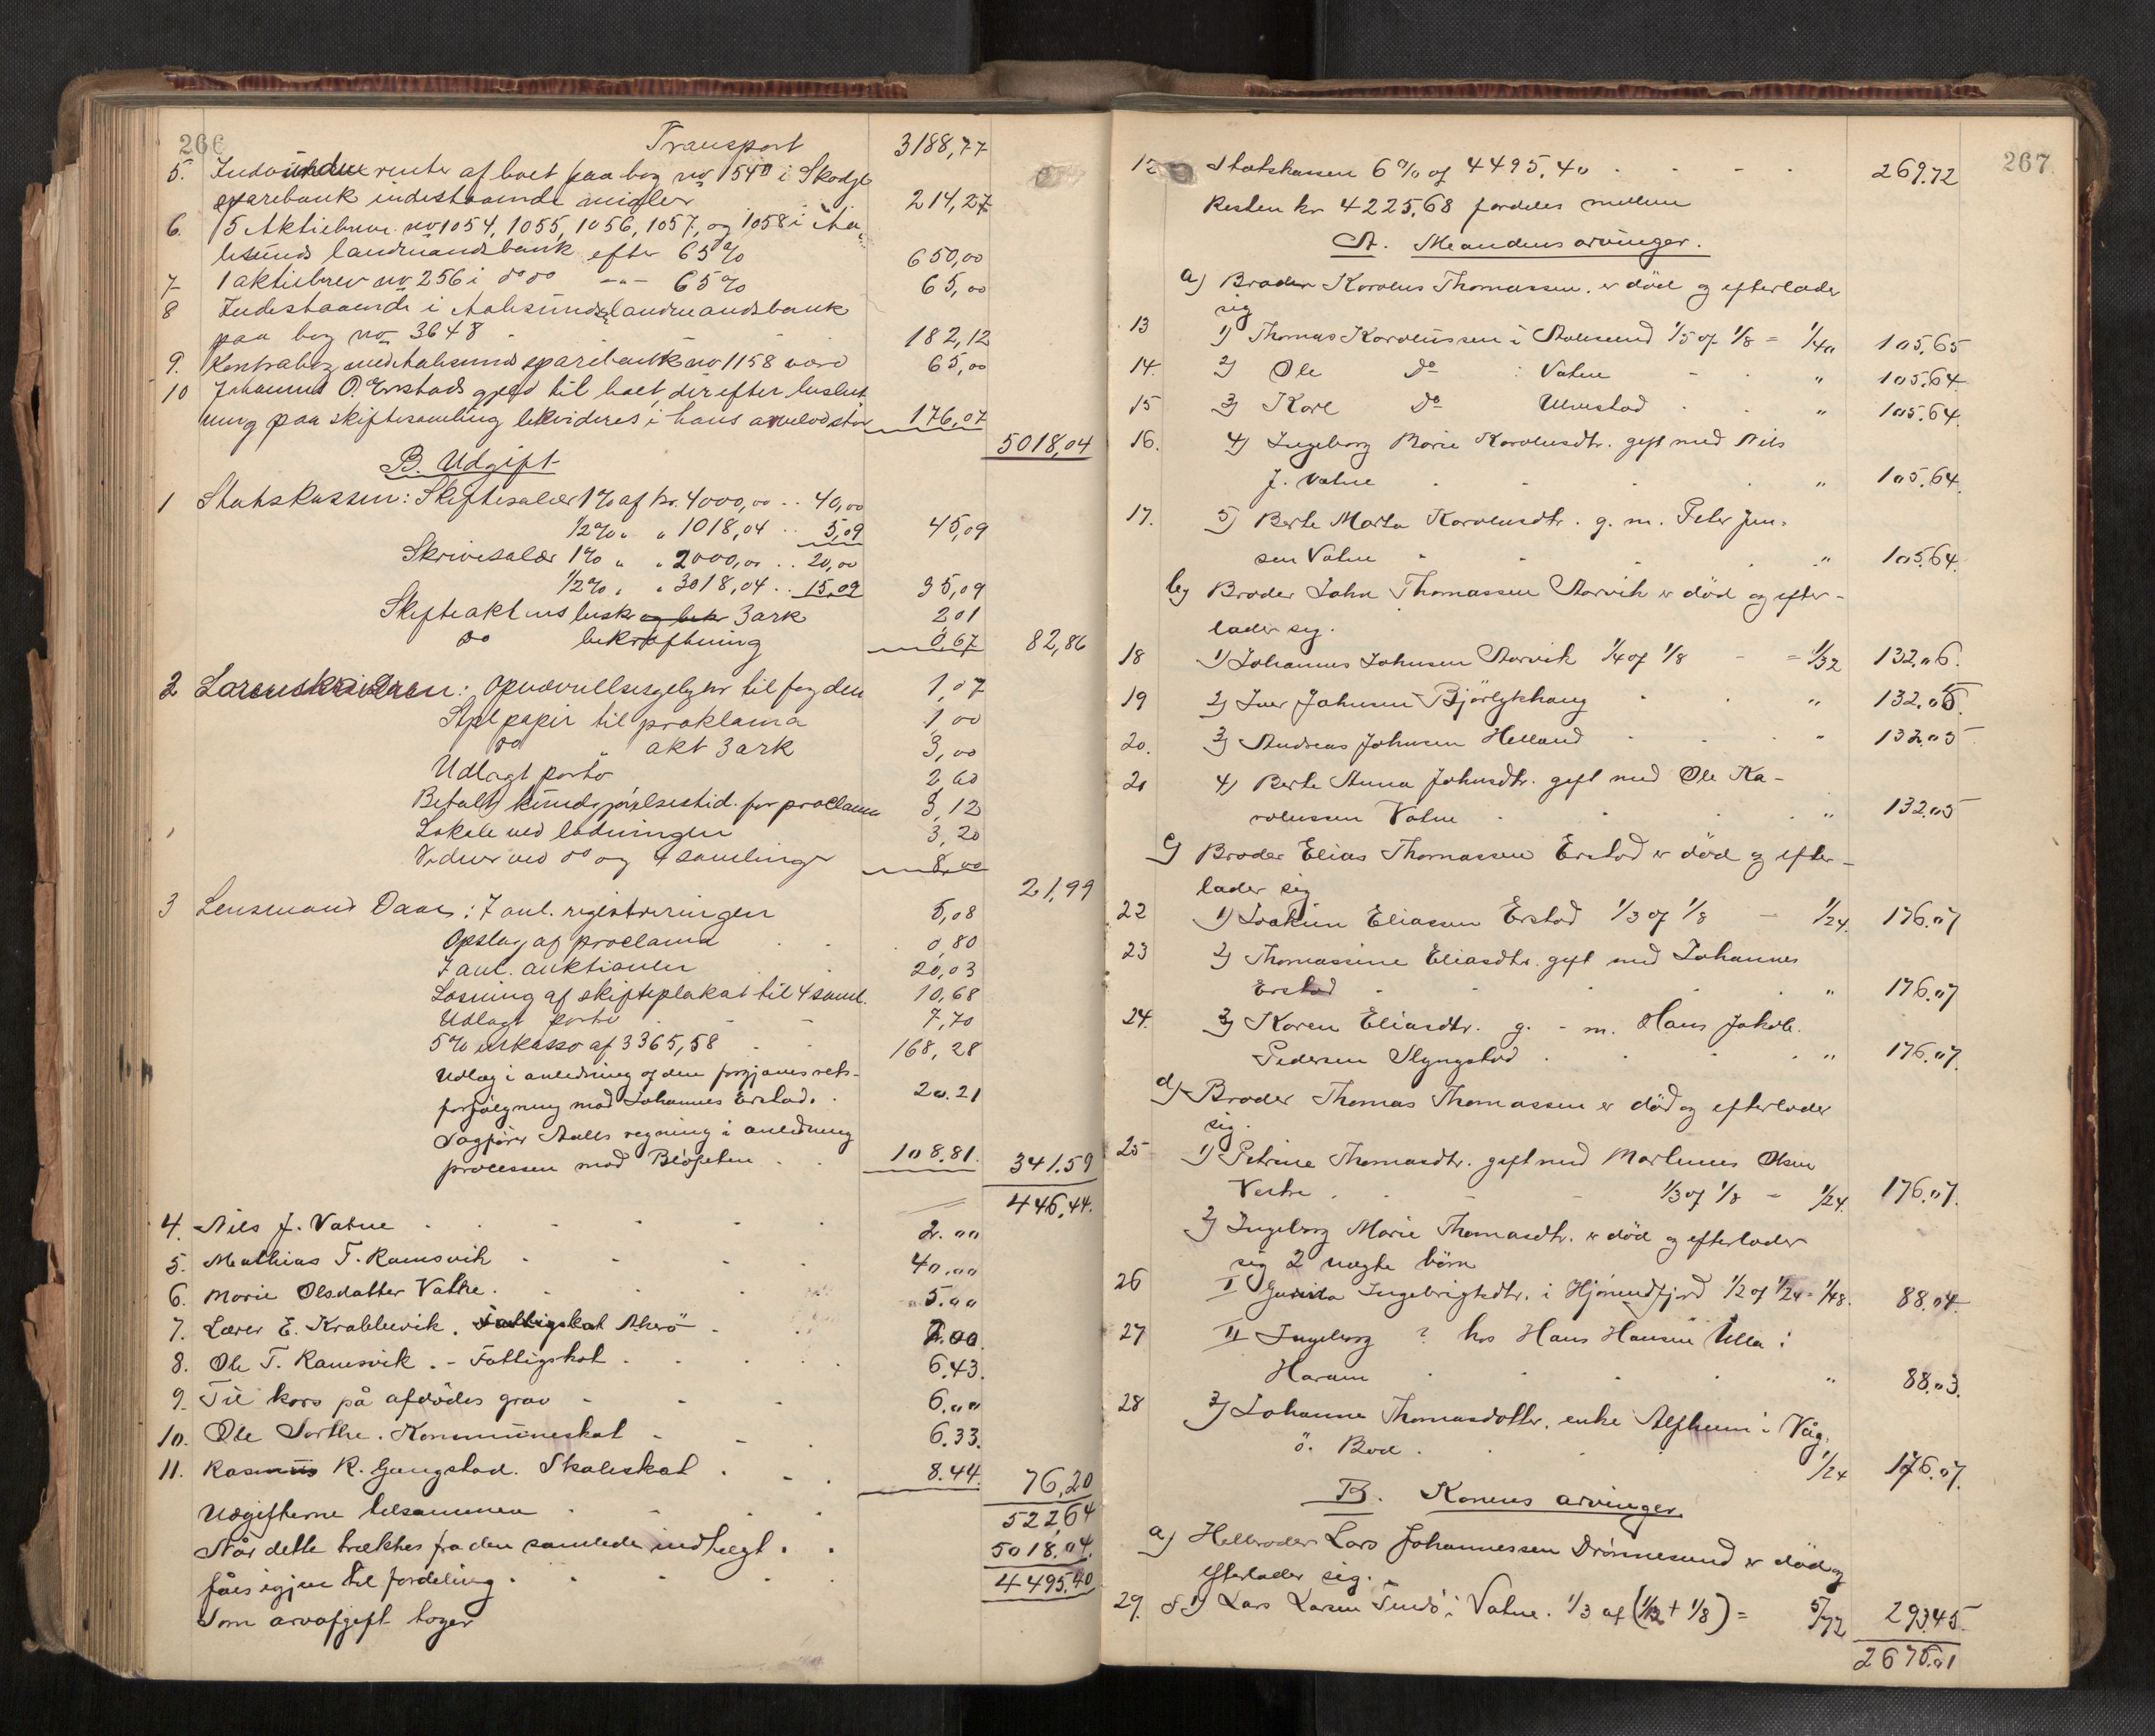 266
Transport 3188,77
5. renter af boet paa bog no 1540 i Skodje
sparebank indestaaende midler 214,27
6. 5 Aktiebreve no 1054, 1055, 1056, 1057, og 1058 i Aa-
lesunds landmandsbank efter 65% 650,00
7 1 aktiebrev no 256 i do do -"- 65% 65,00
8 Indestaaende i Aalesunds landmandsbank
paa bog no 3648 182,12
9. Kontrabog med Aalesunds sparebank no 1158 værd 65,00
10 Johannes O. Erstads gjæld til boet, der efter beslut
ning paa skiftesamling likvideres i hans arvelod stor 176,07
5018,04
B. Udgift
1 Statskassen: Skiftesalær 1% af kr. 4000,00 .. 40,00
1/2% " " 1018,04 .. 5,09 45,09
Skrivesalær 1% " " 2000,00 .. 20,00
1/2% " " 3018,04 .. 15,09 35,09
Skifteaktens besk og bekr 3 ark 2 01
do bekræftning 0,67 82,86
2 Sorenskriveren: til fogden 1,07
Stpl papir til proklama 1,00
do " akt 3 ark 3,00
Udlagt porto 2 60
Betalt kundgjørelsestid. for proclama 3,12
Lokale ved lodningen 3,20
Vidner ved do og 4 samlinger 8,00
21,99
3 Lensmand Daae: I anl. registreringen 5,08
Opslag af proclama . . . 0,80
I anl. auktionen . . 20,03
Løsning af skifteplakat til 4 saml. 10,68
Udlagt porto . - - 7,70
5% inkasso af 3365,58 - - 168,28
Udlæg i anledning af den forgjæves rets-
forfølgning mod Johannes Erstad. . 20.21
Sagfører Aalls regning i anledning
processen mod . . 108.81. 341.59
446,44.
4. Nils J. Vatne . . . . . 2.00
5. Mathias T. Ramsvik . . . . 40.00
6. Marie Olsdatter Vatne. . . . 5.00
7. Lærer E. Krablevik. Fattigskat Akerø . 2.00.
8. Ole T. Ramsvik . - Fattigskat . . . . 6.43.
9. Til kors på afdødes grav - - - 6.00
10. Ole Sorthe. Kommuneskat - - . 6.33.
11. Rasmus R. Gangstad. Skoleskat . - . 8.44. 76,20
Udgifterne tilsammen . - . . 522,64
Når dette trækkes fra den samlede indtægt . . 5018.04.
fåes igjen til fordeling . . . . 4495.40
Som arvafgift tages
267
12 Statskassen 6% af 4495.40 . - - . 269.72
Resten kr 4225,68 fordeles mellem
A. Mandens arvinger.
a) Broder Karolus Thomassen. er død og efterlader
sig
13 1) Thomas Karolussen i Aalesund 1/5 af 1/8 = 1/40 105,65
14. 2) Ole do i Vatne - . " 105.64.
15 3) Karl do Ulvestad . . " 105.64.
16. 4) Ingeborg Marie Karolusdtr. gift med Nils
J. Vatne . . . . " 105.64.
17. 5) Berte Marta Karolusdtr. g. m. Peter Jen-
sen Vatne . . . . " 105.64.
b) Broder John Thomassen Aarvik er død og efter-
lader sig.
18 1) Johannes Johnsen Aarvik 1/4 af 1/8 - = 1/32 132,06.
19 2) Iver Johnsen Bjørlykhaug . . " 132,05.
20. 3) Andreas Johnsen Helland . . . " 132.05
21 4) Berte Anna Johnsdtr. gift med Ole Ka-
rolussen Vatne . . . . " 132.05
c) Broder Elias Thomassen Erstad er død og efter-
lader sig
22 1) Joakim Eliassen Erstad 1/3 af 1/8 - 1/24. 176.07
23 2) Thomassine Eliasdtr. gift med Johannes
Erstad . . . . " 176.07
24. 3) Karen Eliasdtr. g. - m. Hans Jakob.
Pedersen Slyngstad . . . " 176.07.
d) Broder Thomas Thomassen er død og efterlader
sig.
25 1) Petrine Thomasdtr. gift med Martinus Olsen
Vestre . . - - 1/3 af 1/8 - 1/24. 176.07.
2) Ingeborg Marie Thomasdtr. er død og efterlader
sig 2 uægte børn
26 I Ingebrigtsdtr. i Hjørundfjord 1/2 af 1/24 = 1/48. 88.04.
27 II Ingeborg ? hos Hans Hansen Ulla i
Haram . . . . " 88.03.
28 3) Johanne Thomasdotter. enke Alfheim i Våg.
ö. Bod . . . . 1/24 176.07.
B. Konens arvinger.
a) Helbroder Lars Johannessen Drønnesund er død og
efterlader sig.
29. 1) Lars Larsen i Vatne. 1/3 af (1/12 + 1/8) = 5/72 293.45.
2675.01